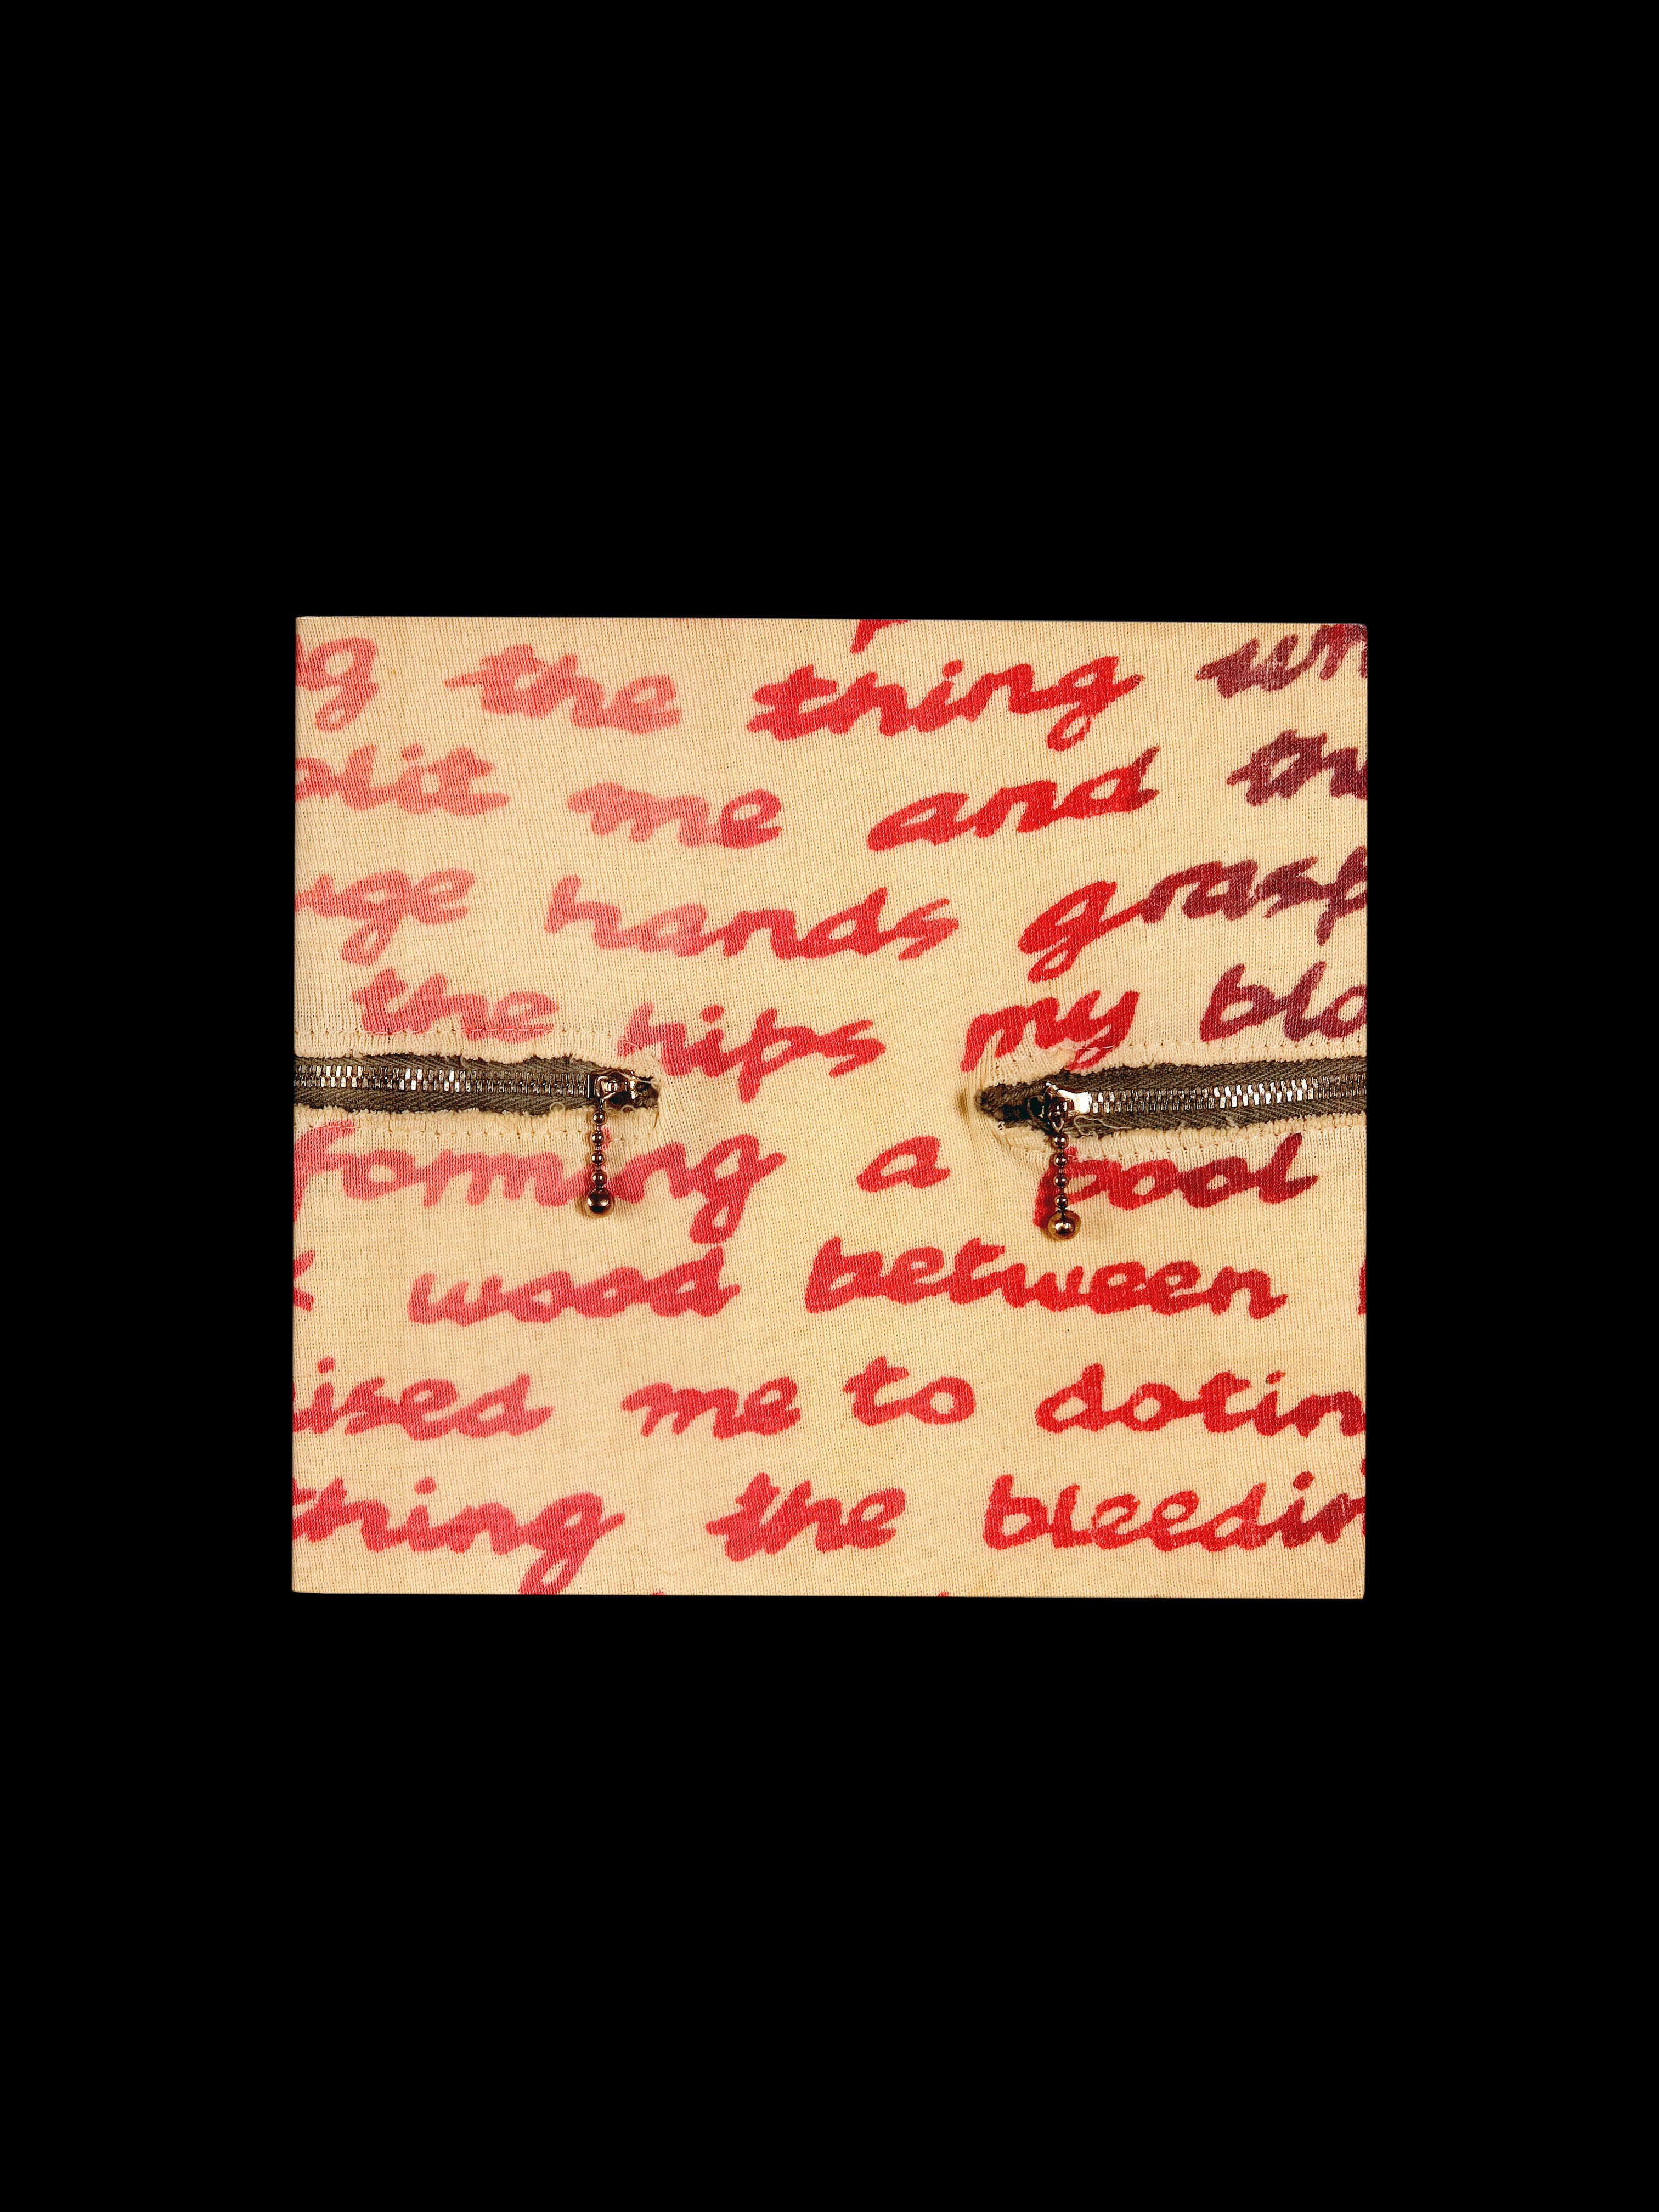 g the thing
plit me and
uge hands grasp
the hips my blo
forming a pool
wood between
ised me to dotin
thing the bleedin